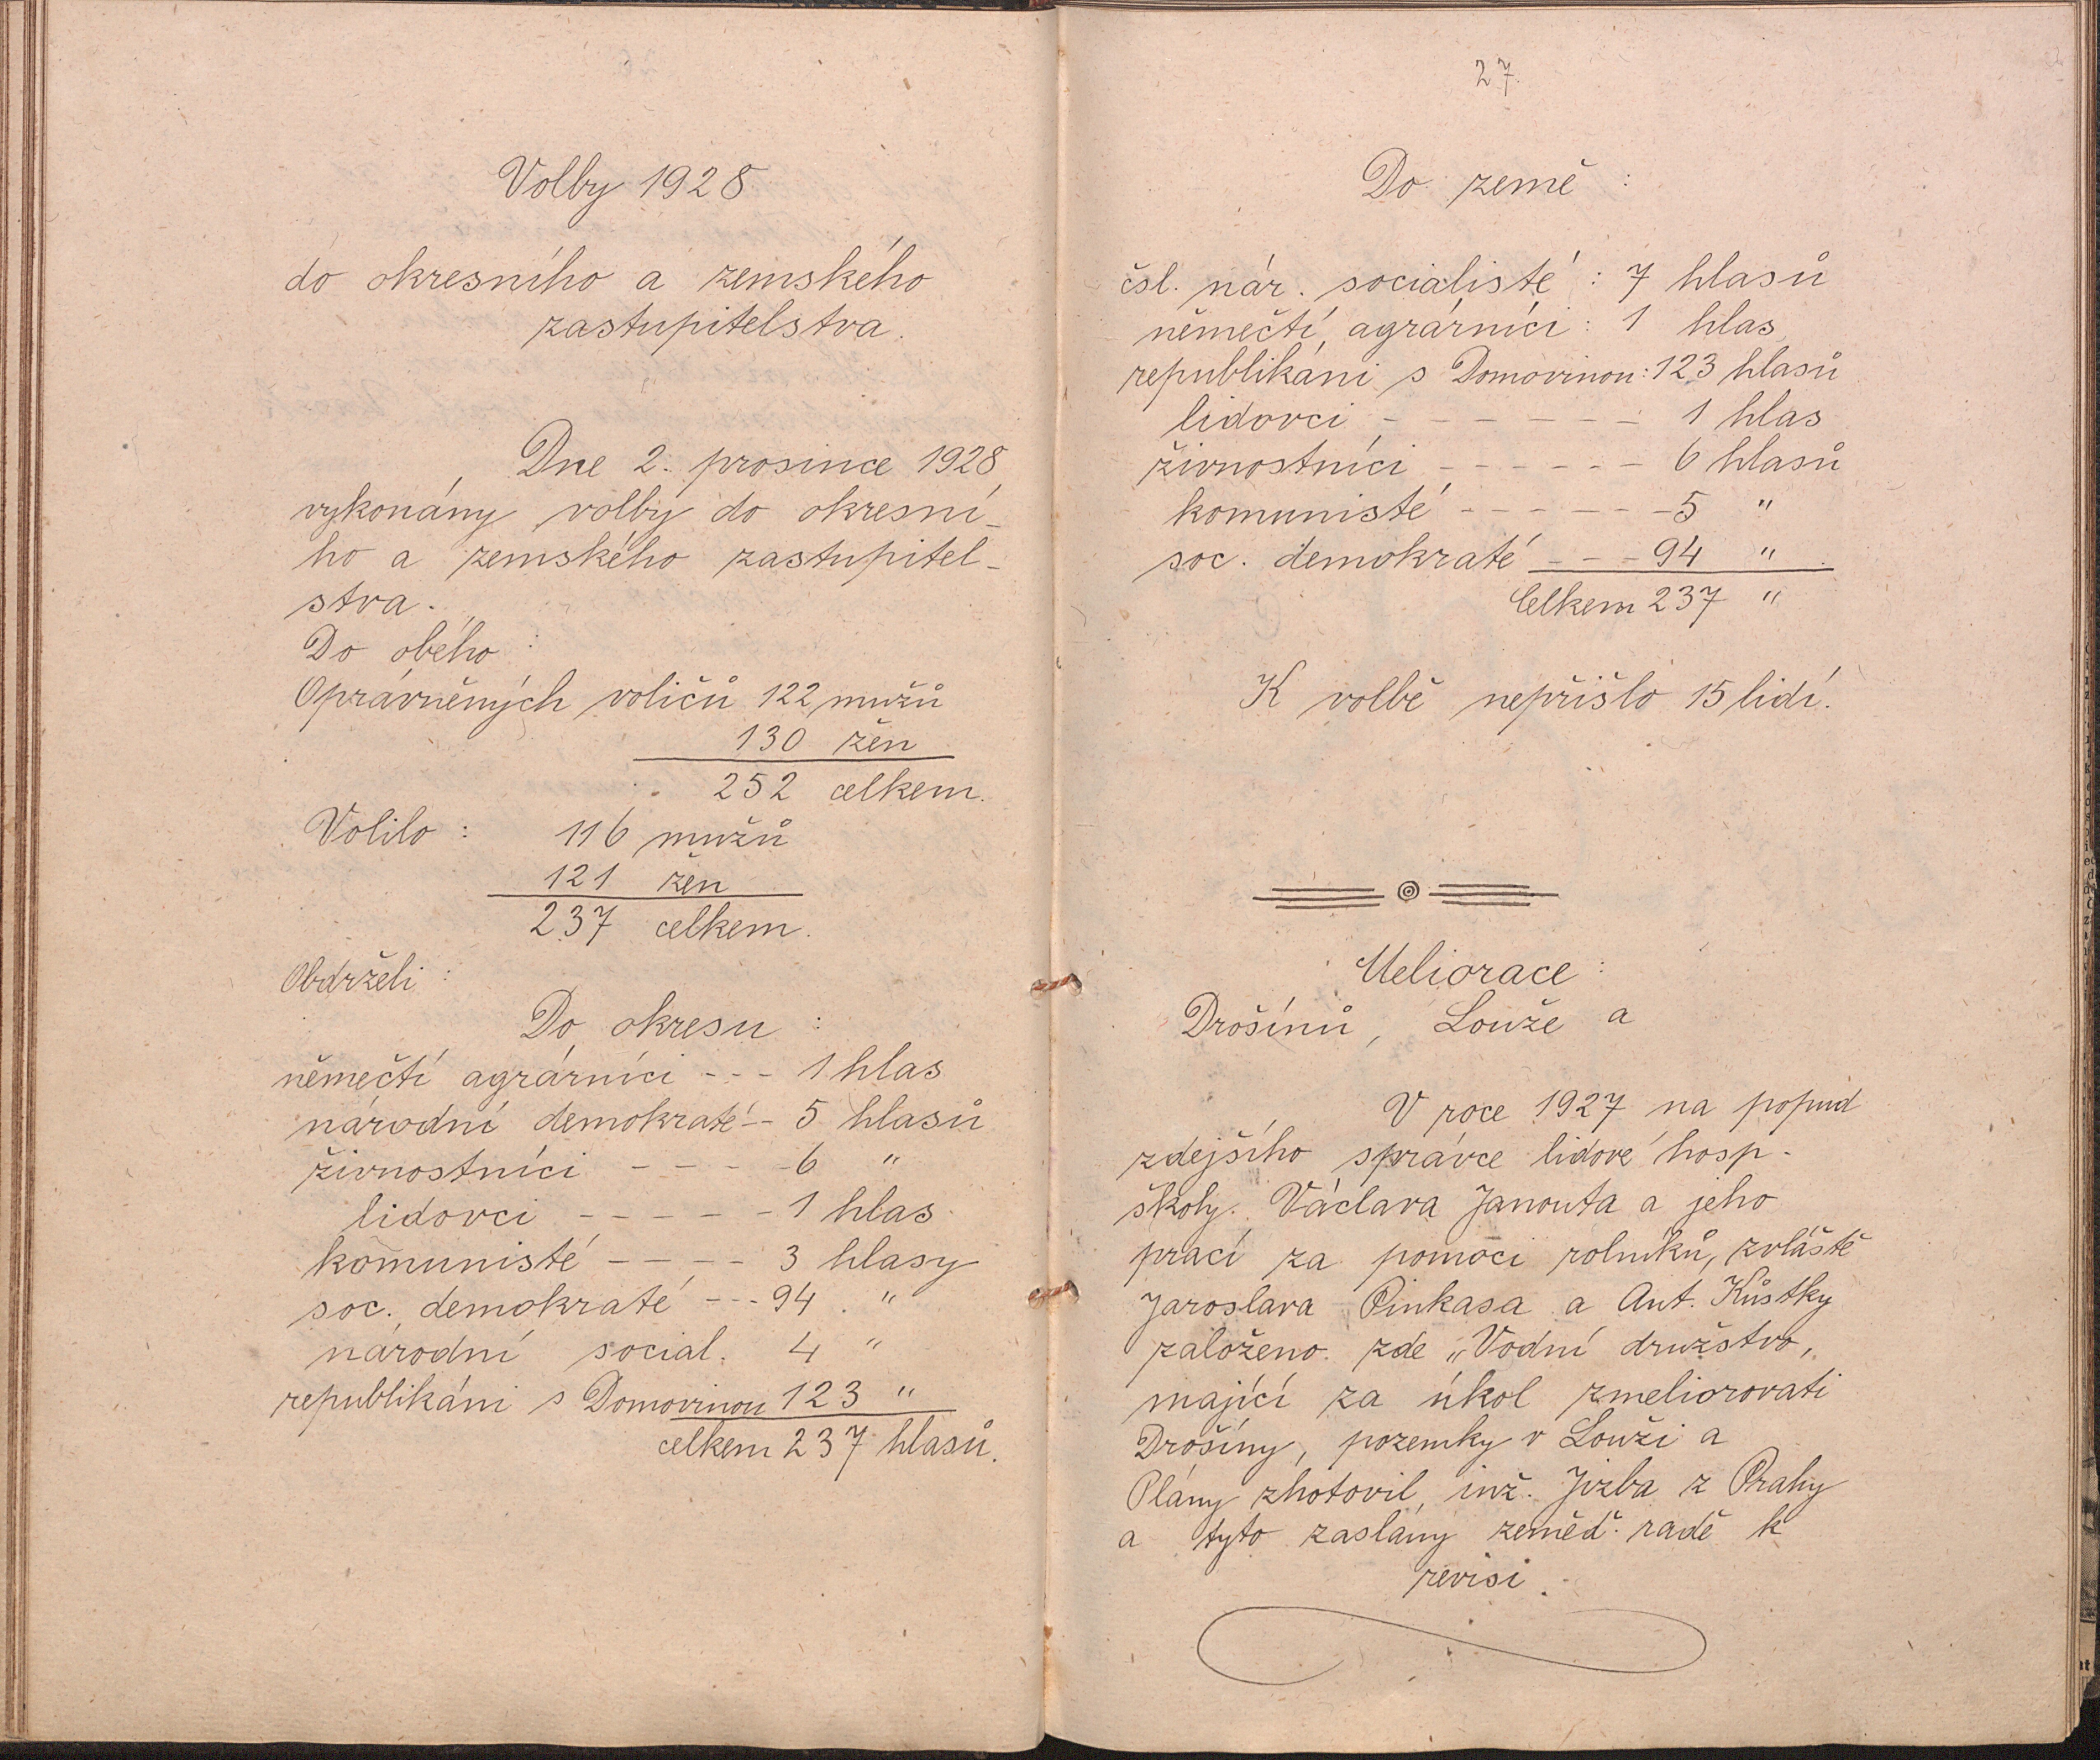 Volby 1928
do okresního a zemského
zastupitelstva.
Dne 2. prosince 1928
vykonány volby do okresní-
ho a zemského zastupitel-
stva.
Do obého :
Oprávněných voličů 122 mužů
130 žen
252 celkem.
Volilo : 116 mužů
121 žen
237 celkem.
Obdrželi :
Do okresu :
němečtí agrárníci - - - 1 hlas
národní demokraté - - 5 hlasů
živnostníci - - - - 6 "
lidovci - - - - - 1 hlas
komunisté - - - - 3 hlasy
soc. demokraté - - - 94 . "
národní social. 4 "
republikáni s Domovinou 123 "
celkem 237 hlasů.
27.
Do země :
čsl. nár. socialisté : 7 hlasů
němečtí agrárníci : 1 hlas
republikáni s Domovinou : 123 hlasů
lidovci - - - - - - - 1 hlas
živnostníci - - - - - - 6 hlasů
komunisté - - - - - - 5 "
soc. demokraté - - - 94 " .
Celkem 237 "
K volbě nepřišlo 15 lidí.
Meliorace :
Drošínů, Louže a
V roce 1927 na popud
zdejšího správce lidové hosp.
školy. Václava Janouta a jeho
prací za pomoci rolníků, zvláště
Jaroslava Pinkasa a Ant. Kůstky
založeno. zde „Vodní družstvo,
mající za úkol zmeliorovati
Drošíny, pozemky v Louži a
Plány zhotovil inž. Jizba z Prahy
a tyto zaslány zeměd. radě k
revisi.